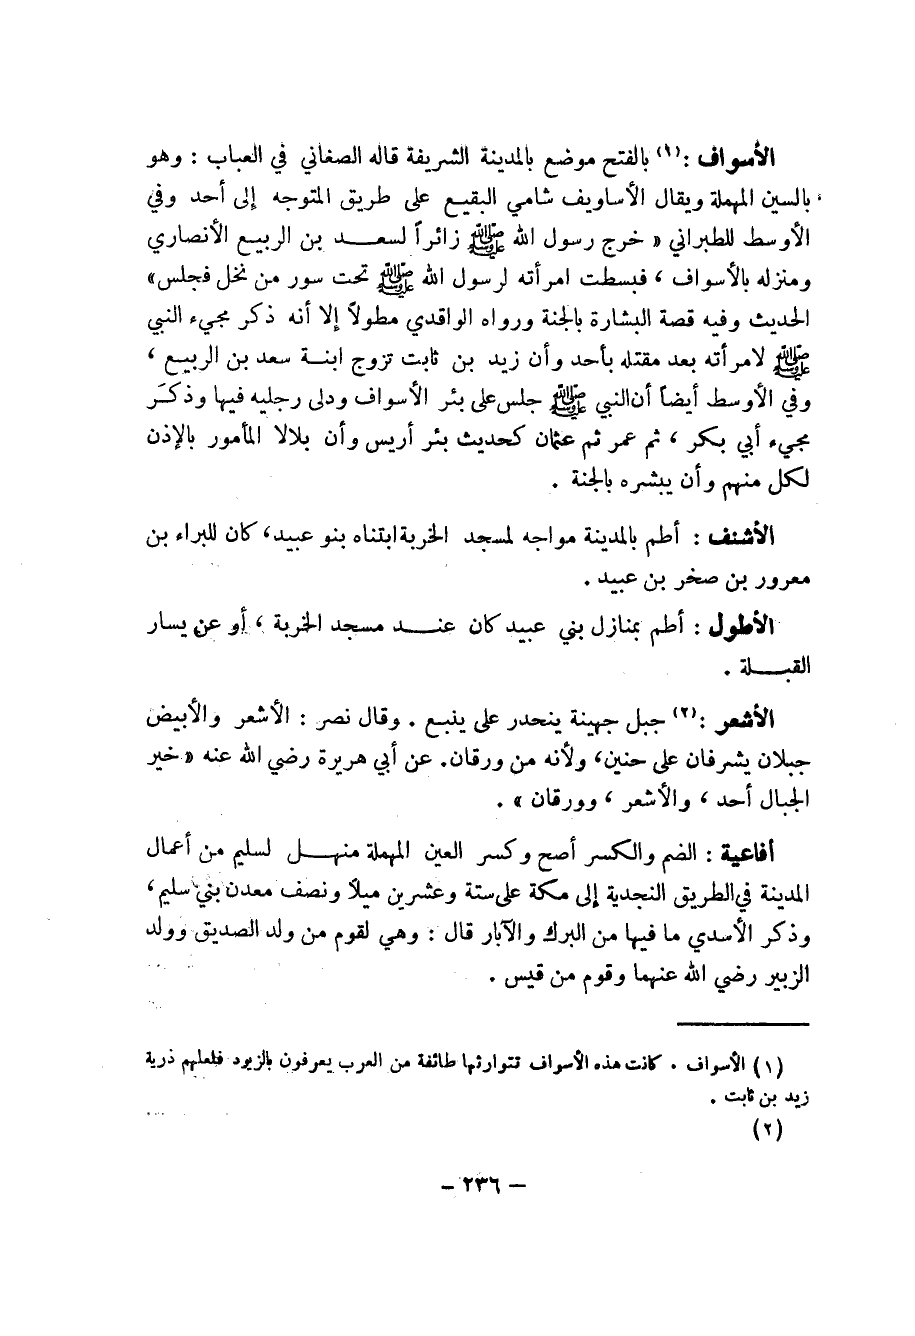 الأسواف :(١) بالفتح موضع بالمدينة الشريفة قاله الصغاني في العباب : وهو
بالسين المهملة ويقال الأساويف شامي البقيع على طريق المتوجه إلى أحد وفي
الأوسط للطبراني « خرج رسول الله ﷺ زائراً لسعد بن الربيع الأنصاري
ومنزله بالأسواف ، فبسطت امرأته لرسول الله ﷺ تحت سور من نخل فجلس»
الحديث وفيه قصة البشارة بالجنة ورواه الواقدي مطولاً إلا أنه ذكر مجيء النبي
ﷺ لامرأته بعد مقتله بأحد وأن زيد بن ثابت تزوج ابنة سعد بن الربيع ،
وفي الأوسط أيضاً أن النبي ﷺ جلس على بئر الأسواف ودلى رجليه فيها وذكَر
مجيء أبي بكر ، ثم عمر ثم عثمان كحديث بئر أريس وأن بلالا المأمور بالإذن
لكل منهم وأن يبشره بالجنة .
الأشنف : أطم بالمدينة مواجه لمسجد الخربة ابتناه بنو عبيد، كان للبراء بن
معرور بن صخر بن عبيد .
الأطول : أطم بمنازل بني عبيد كان عند مسجد الخربة ، أو عن يسار
القبلة .
الأشعر :(٢) جبل جهينة ينحدر على ينبع . وقال نصر : الأشعر والأبيض
جبلان يشرفان على حنين، ولأنه من ورقان. عن أبي هريرة رضي الله عنه « خير
الجبال أحد ، والأشعر ، وورقان » .
أفاعية : الضم والكسر أصح وكسر العين المهملة منهل لسليم من أعمال
المدينة في الطريق النجدية إلى مكة على ستة وعشرين ميلاً ونصف معدن بني سليم،
وذكر الأسدي ما فيها من البرك والآبار قال : وهي لقوم من ولد الصديق وولد
الزبير رضي الله عنهما وقوم من قيس .
(١) الأسواف . كانت هذه الأسواف تتوارثها طائفة من العرب يعرفون بالزيود فلعلهم ذرية
زيد بن ثابت .
(٢)
– ٢٣٦ –